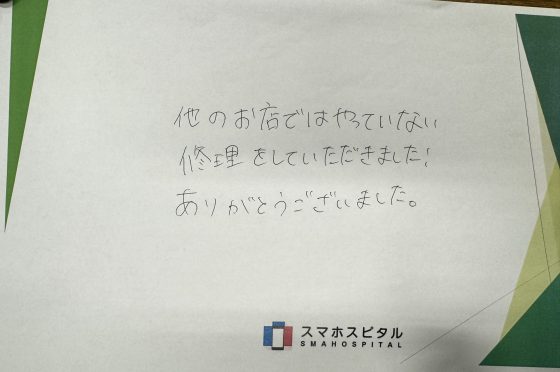 他のお店ではやっていない
修理をしていただきました!
ありがとうございました。
スマホスピタル
SMAHOSPITAL